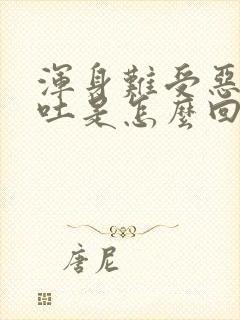 渾身難受惡
吐是怎麼回
唐尼